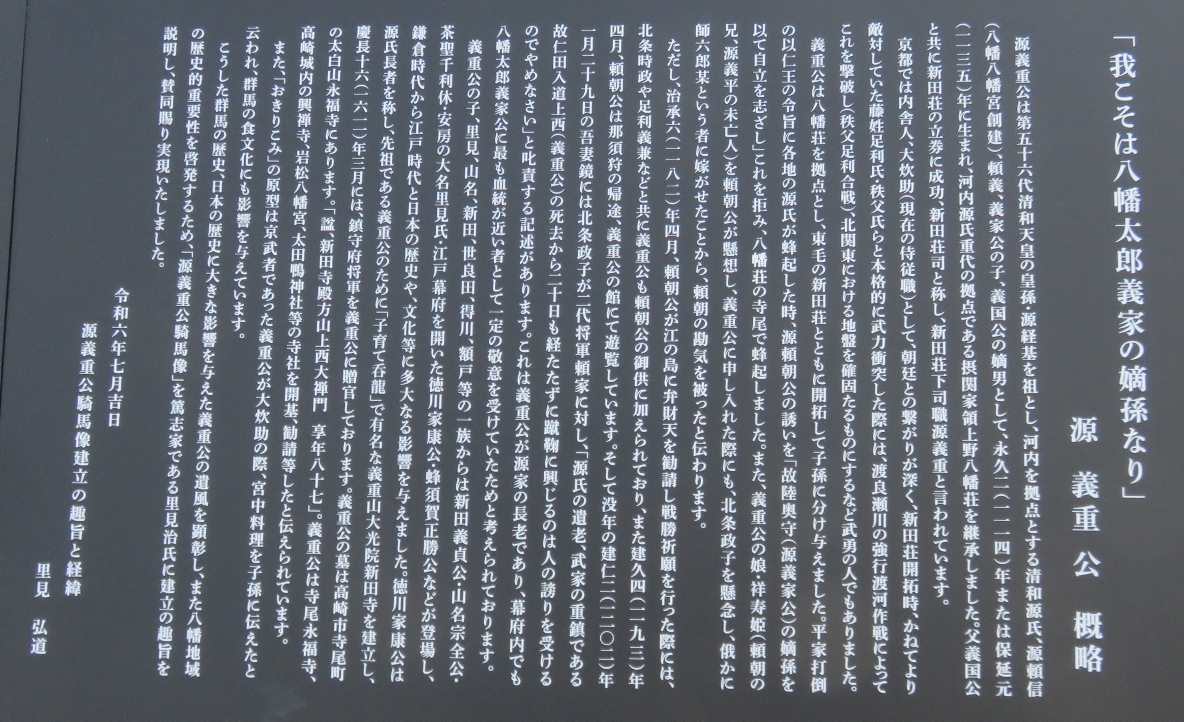 「我こそは八幡太郎義家の嫡孫なり」
源 義重 公 概略
源義重公は第五十六代清和天皇の皇孫・源経基を祖とし、河内を拠点とする清和源氏、源頼信
(八幡八幡宮創建)、頼義、義家公の子、義国公の嫡男として、永久二(一一一四)年または保延元
(一一三五)年に生まれ、河内源氏重代の拠点である摂関家領上野八幡荘を継承しました。父義国公
と共に新田荘の立券に成功、新田荘司と称し、新田荘下司職源義重と言われています。
京都では内舎人、大炊助(現在の侍従職)として、朝廷との繋がりが深く、新田荘開拓時、かねてより
敵対していた藤姓足利氏・秩父氏らと本格的に武力衝突した際には、渡良瀬川の強行渡河作戦によって
これを撃破し(秩父足利合戦)、北関東における地盤を確固たるものにするなど武勇の人でもありました。
義重公は八幡荘を拠点とし、東毛の新田荘とともに開拓して子孫に分け与えました。平家打倒
の以仁王の令旨に各地の源氏が蜂起した時、源頼朝公の誘いを「故陸奥守(源義家公)の嫡孫を
以て自立を志ざし」これを拒み、八幡荘の寺尾で蜂起しました。また、義重公の娘・祥寿姫(頼朝の
兄、源義平の未亡人)を頼朝公が懸想し、義重公に申し入れた際にも、北条政子を懸念し、俄かに
師六郎某という者に嫁がせたことから、頼朝の勘気を被ったと伝わります。
ただし、治承六(一一八二)年四月、頼朝公が江の島に弁財天を勧請し戦勝祈願を行った際には、
北条時政や足利義兼などと共に義重公も頼朝公の御供に加えられており、また建久四(一一九三)年
四月、頼朝公は那須狩の帰途、義重公の館にて遊覧しています。そして没年の建仁二(一二〇二)年
一月二十九日の吾妻鏡には北条政子が二代将軍頼家に対し、「源氏の遺老、武家の重鎮である
故仁田入道上西(義重公)の死去から二十日も経たたずに蹴鞠に興じるのは人の謗りを受ける
のでやめなさい」と叱責する記述があります。これは義重公が源家の長老であり、幕府内でも
八幡太郎義家公に最も血統が近い者として一定の敬意を受けていたためと考えられております。
義重公の子、里見、山名、新田、世良田、得川、額戸等の一族からは新田義貞公・山名宗全公・
茶聖千利休・安房の大名里見氏・江戸幕府を開いた徳川家康公・蜂須賀正勝公などが登場し、
鎌倉時代から江戸時代と日本の歴史や、文化等に多大なる影響を与えました。徳川家康公は
源氏長者を称し、先祖である義重公のために「子育て呑龍」で有名な義重山大光院新田寺を建立し、
慶長十六(一六一一)年三月には、鎮守府将軍を義重公に贈官しております。義重公の墓は高崎市寺尾町
の太白山永福寺にあります。「諡、新田寺殿方山上西大禅門 享年八十七」。義重公は寺尾永福寺、
高崎城内の興禅寺、岩松八幡宮、太田鴨神社等の寺社を開基、勧請等したと伝えられています。
また、「おきりこみ」の原型は京武者であった義重公が大炊助の際、宮中料理を子孫に伝えたと
云われ、群馬の食文化にも影響を与えています。
こうした群馬の歴史、日本の歴史に大きな影響を与えた義重公の遺風を顕彰し、また八幡地域
の歴史的重要性を啓発するため、「源義重公騎馬像」を篤志家である里見治氏に建立の趣旨を
説明し、賛同賜り実現いたしました。
令和六年七月吉日
源義重公騎馬像建立の趣旨と経緯
里見 弘道